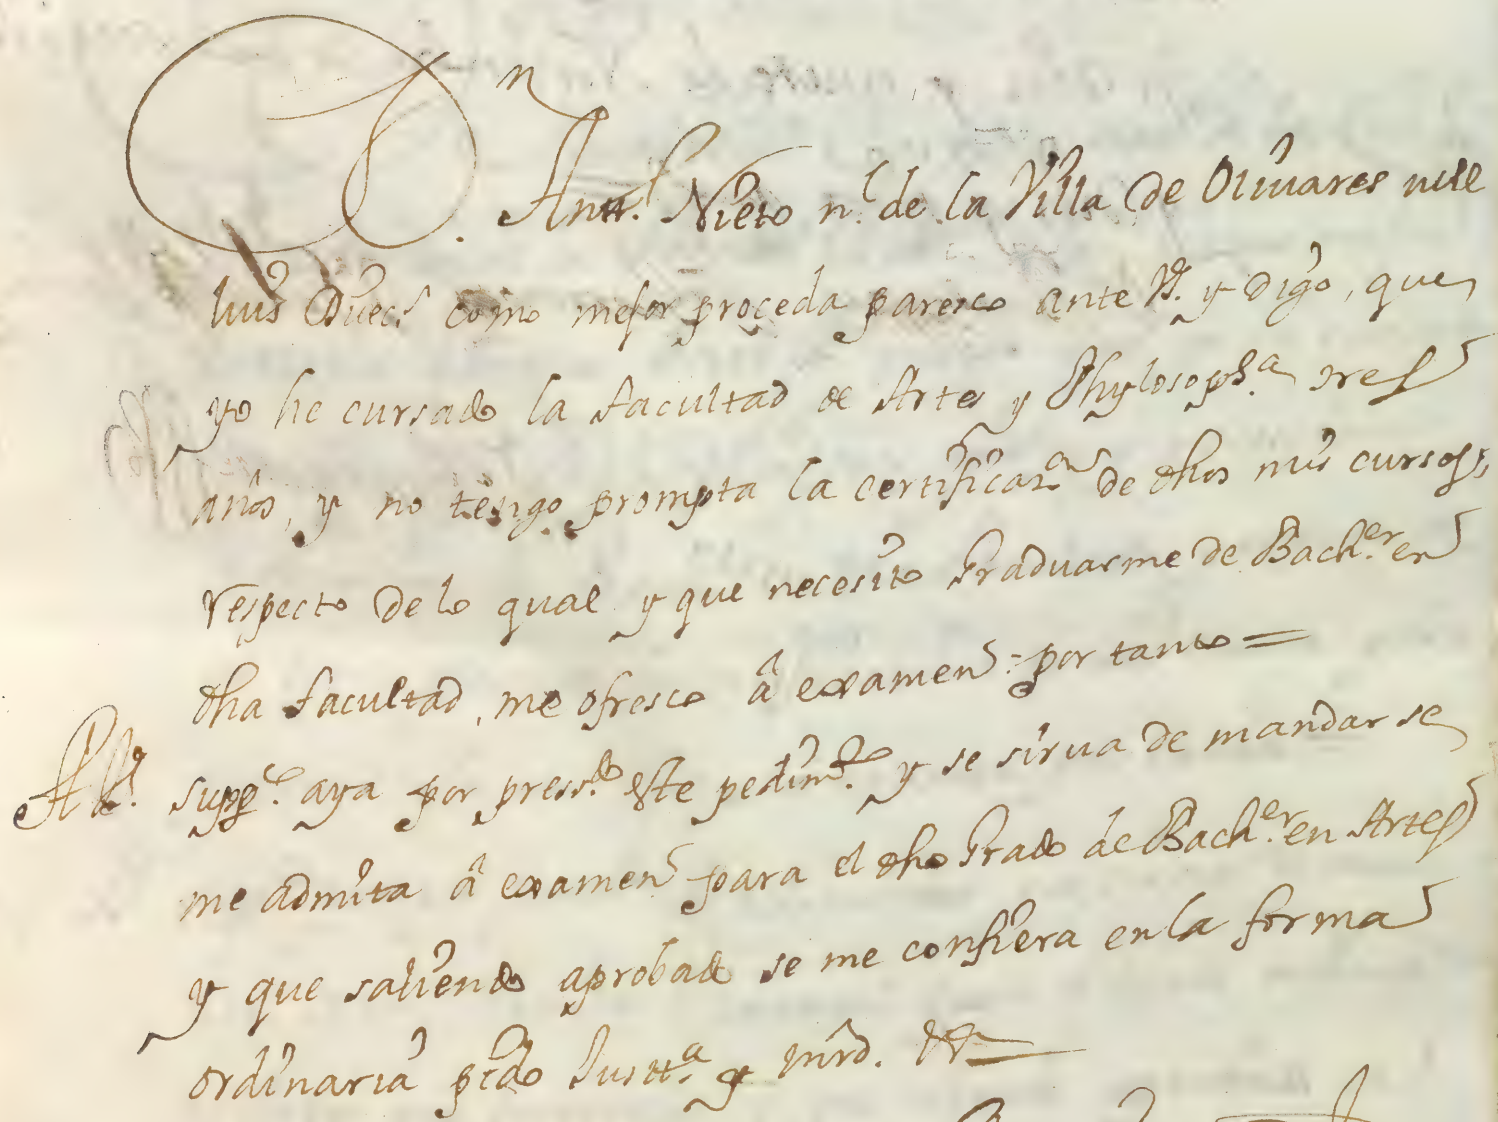 Dn. Antt.o Nieto n.l de la Villa de Oliuares null
como mejor proceda paresco ante Vs. y Digo, que
yo he cursado la facultad de Artes y Phylosoph.a tres
años, y no tengo prompta la certificaz.on de dhos mis cursos,
respecto de lo qual y que necesito Graduarme de Bach.er en
dha facultad, me ofresco â examen: por tanto =
A Vs. supp.co aya por press.do este pedim.to y se sirua de mandar se
me admita â examen para el dho Grado de Bach.er en Artes
y que saliendo aprobado se me confiera en la forma
ordinaria pido Justt.a y mrd. &